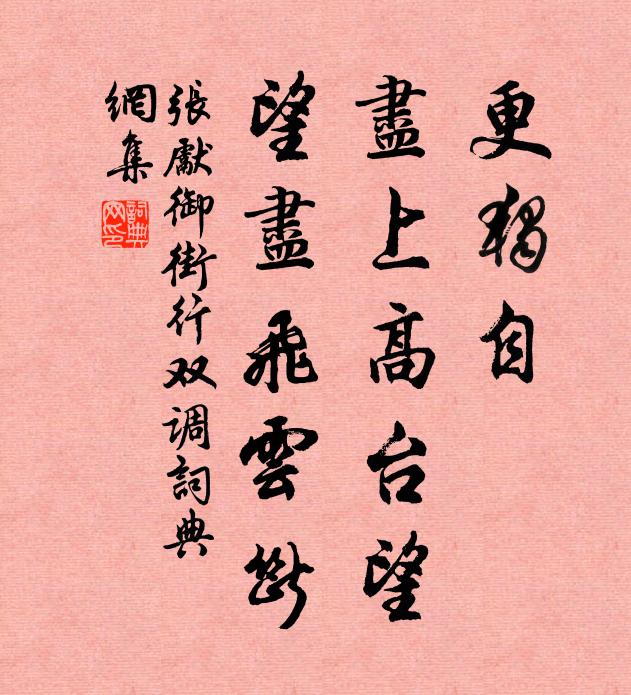 更獨自
盡上高台望
望盡飛雲斷
張獻御街行双调詞典
網集
詞典
网印